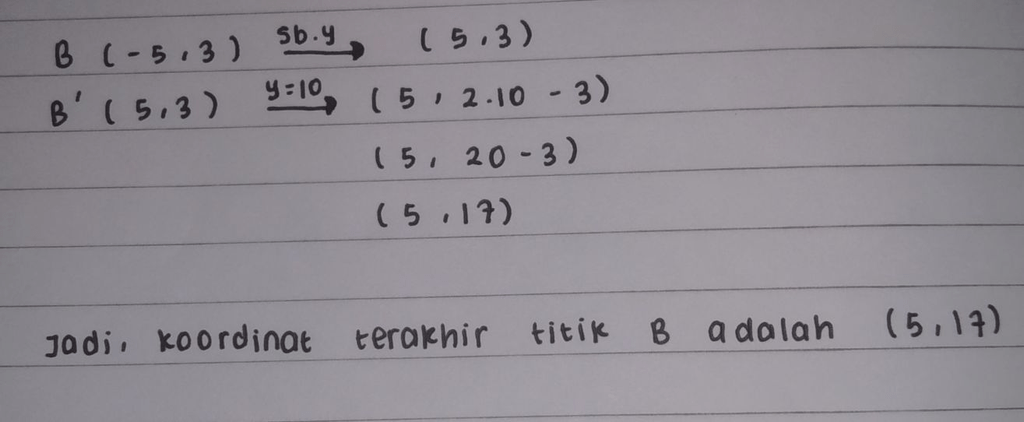 B (-5,3) sb.y → (5,3)
B' (5,3) y=10 → (5, 2.10 - 3)
(5, 20 - 3)
(5,17)
Jadi, koordinat terakhir titik B adalah (5,17)